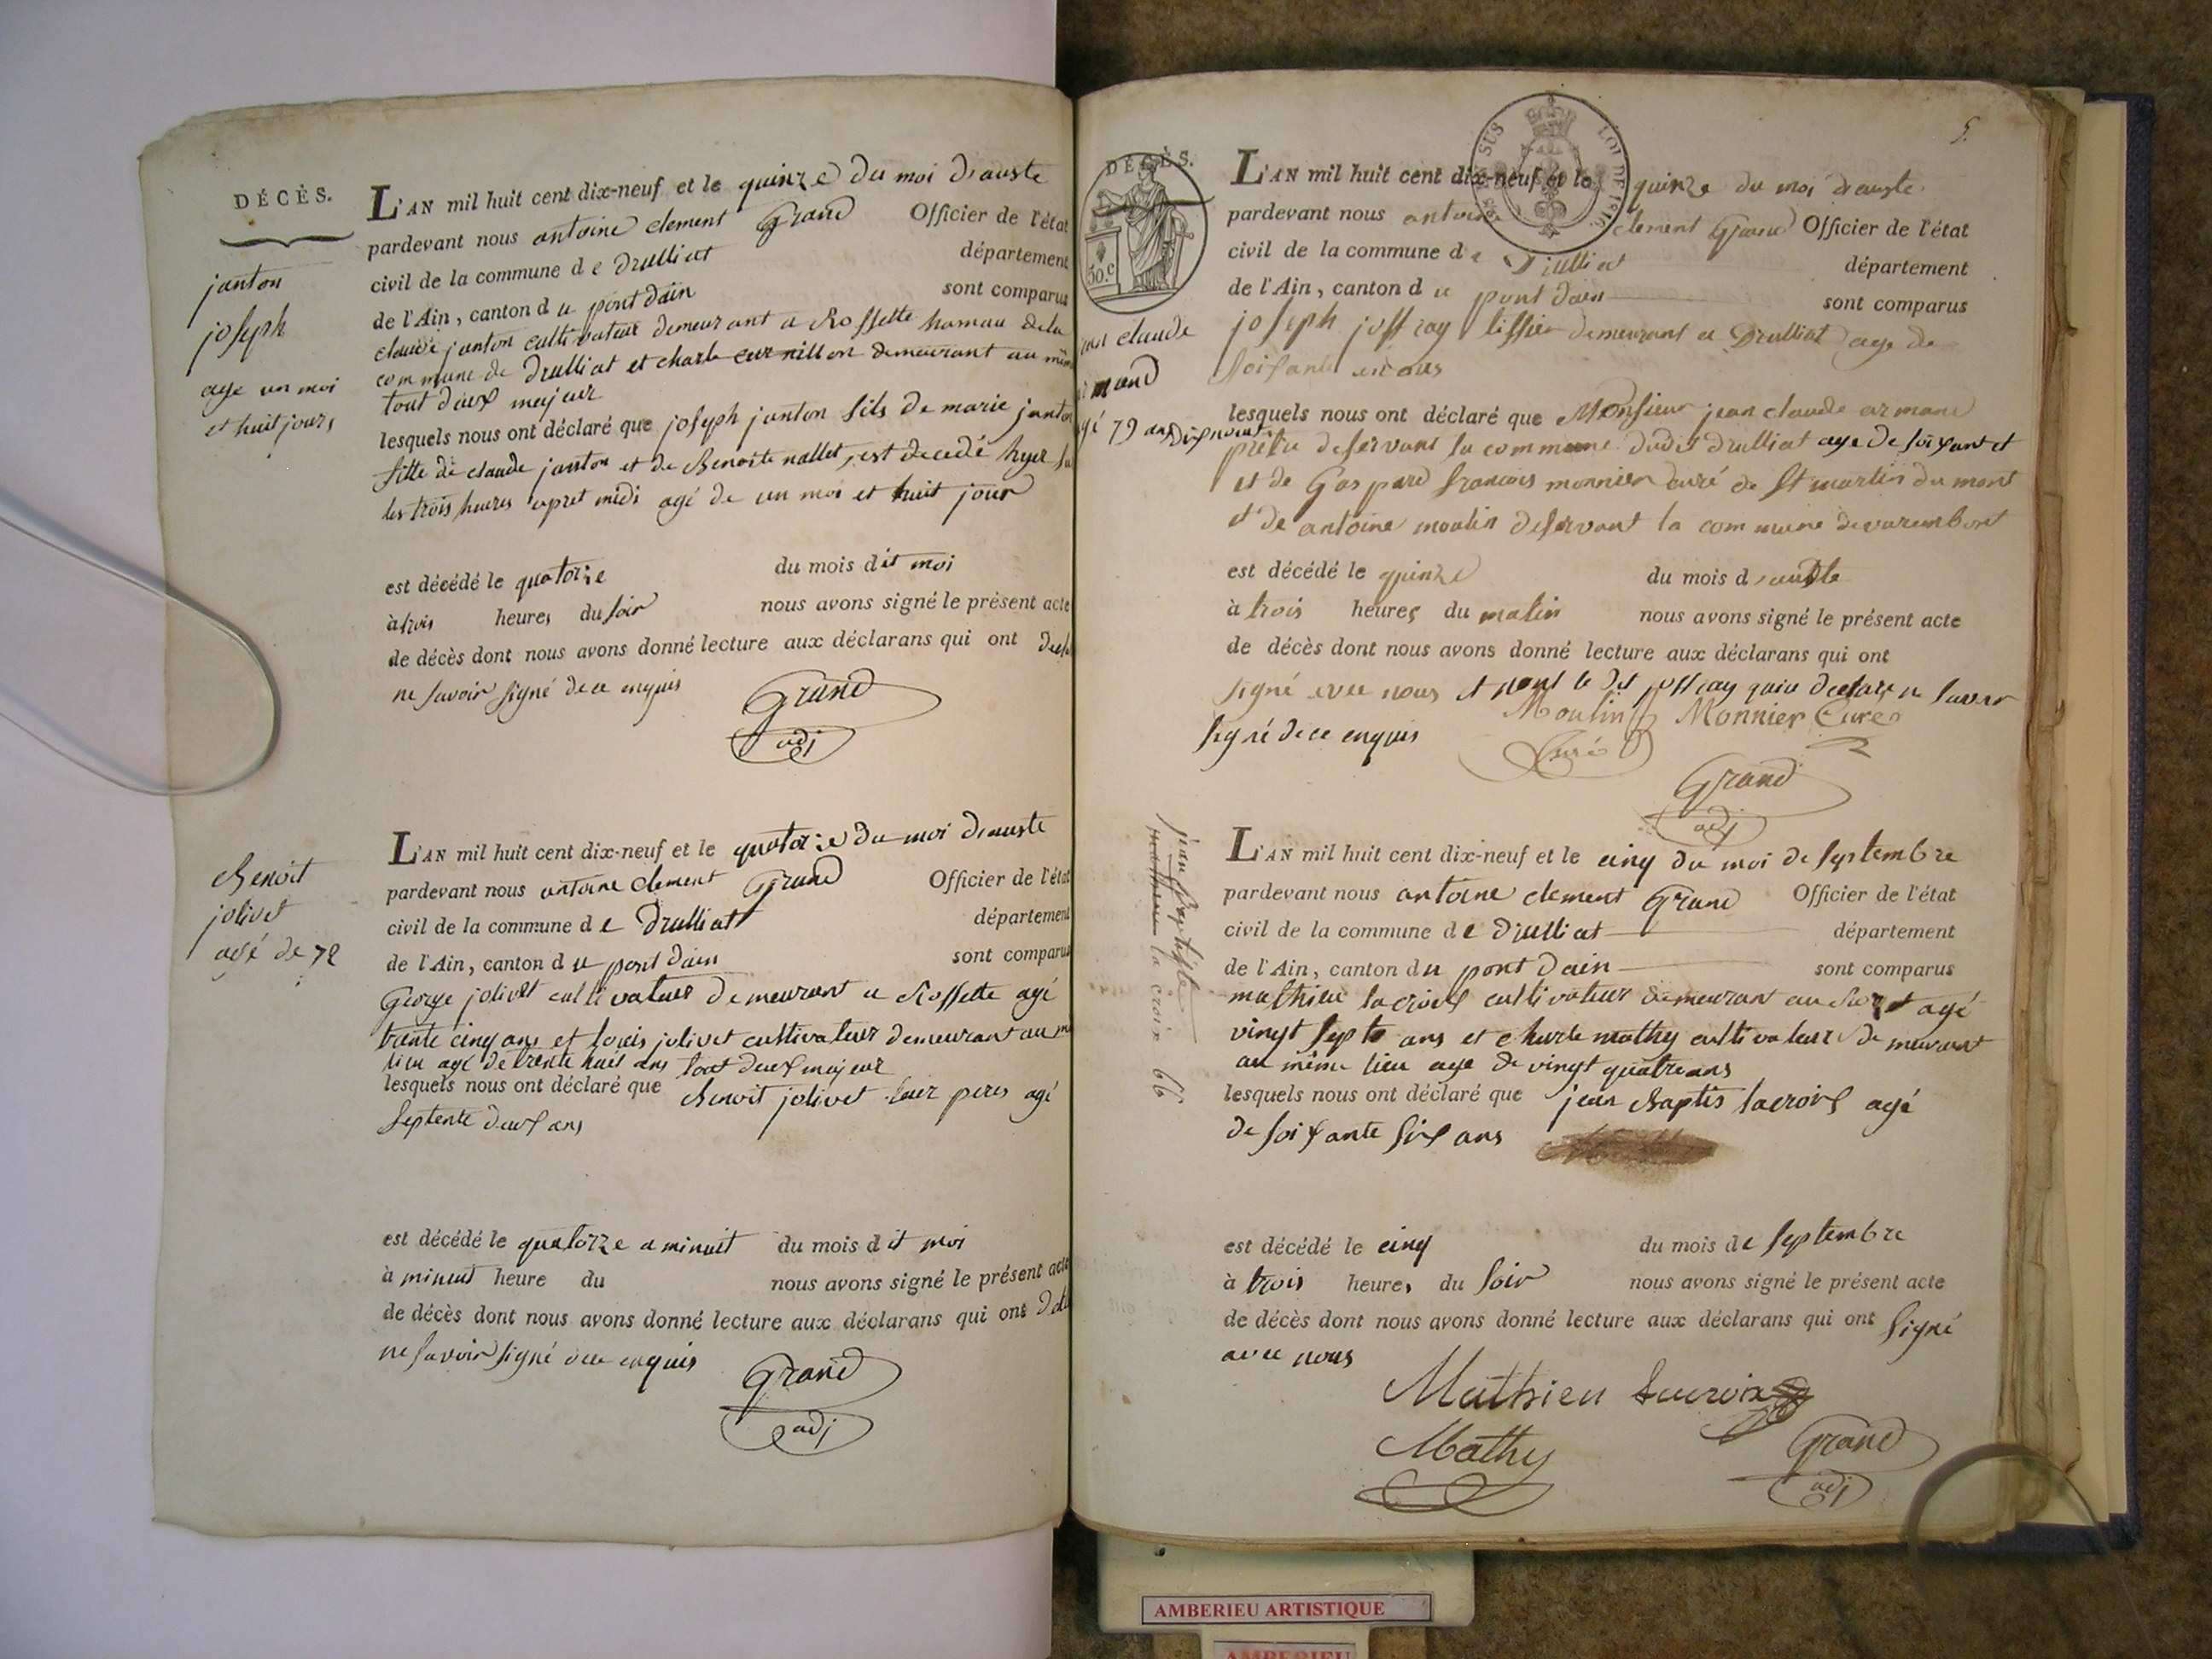 DÉCÈS.
janton
joseph
age un moi
et huit jours
L'AN mil huit cent dix-neuf et le quinze du moi d'auste
pardevant nous antoine clement Grand Officier de l'état
civil de la commune de Drulliat département
de l'Ain, canton du pont dain sont comparus
claude janton cultivateur demeurant a Rossette hamau dela
commune de Drulliat et charle curnillon demeurant au mêm
tout deux majeur
lesquels nous ont déclaré que joseph janton fils de marie janton
fille de claude janton et de Benoite nallet, est decedé hyer
les trois heures apret midi agé de un moi et huit jour
est décédé le quatorze du mois dit moi
à trois heures du soir nous avons signé le présent acte
de décès dont nous avons donné lecture aux déclarans qui ont
ne savoir signé de ce enquis
Grand
adj
Benoit
jolivet
agé de 72
L'AN mil huit cent dix-neuf et le quatorze du moi d'auste
pardevant nous antoine clement Grand Officier de l'état
civil de la commune de Drulliat département
de l'Ain, canton du pont dain sont comparus
George jolivet cultivateur demeurant a Rossette agé
trente cinq ans et louis jolivet cultivateur demeurant au
lieu agé de trente huit ans tout deux majeur
lesquels nous ont déclaré que Benoit jolivet leur peres agé
septente deux ans
est décédé le quatorze a minuit du mois dit moi
à minuit heure du nous avons signé le présent acte
de décès dont nous avons donné lecture aux déclarans qui ont
ne savoir signé de ce enquis
Grand
adj
5.
DÉCÈS.
30.c
SUS LOI DE 1816
claude
mand
gé 79 ans
L'AN mil huit cent dix-neuf et le quinze du moi d'auste
pardevant nous antoine clement Grand Officier de l'état
civil de la commune de Drulliat département
de l'Ain, canton du pont dain sont comparus
joseph joffray tissier demeurant a Drulliat age de
soisante ans
lesquels nous ont déclaré que Monsieur jean claude armand
dixneuf
prêtre desservant la commune dudit drulliat age de soixant et
et de Gaspard francois monnier curé de St martin du mont
et de antoine moulin deservant la commune de varembont
est décédé le quinze du mois d'auste
à trois heures du matin nous avons signé le présent acte
de décès dont nous avons donné lecture aux déclarans qui ont
signé avec nous et nont le dit joffray qui a declare ne savoir
signé de ce enquis
Moulin Monnier Curé
Curé
Grand
adj
jean baptiste
mathieu la croix 66
L'AN mil huit cent dix-neuf et le cinq du moi de septembre
pardevant nous antoine clement Grand Officier de l'état
civil de la commune de Drulliat département
de l'Ain, canton du pont dain sont comparus
mathieu lacroix cultivateur demeurant au agé
vingt septe ans et charle mathy cultivateur demeurant
au même lieu age de vingt quatre ans
lesquels nous ont déclaré que jean Baptis lacroix agé
de soixante six ans
est décédé le cinq du mois de septembre
à trois heures du soir nous avons signé le présent acte
de décès dont nous avons donné lecture aux déclarans qui ont signé
avec nous
Mathieu Lacroix
Mathy
Grand
adj
AMBERIEU ARTISTIQUE
AMBERIEU